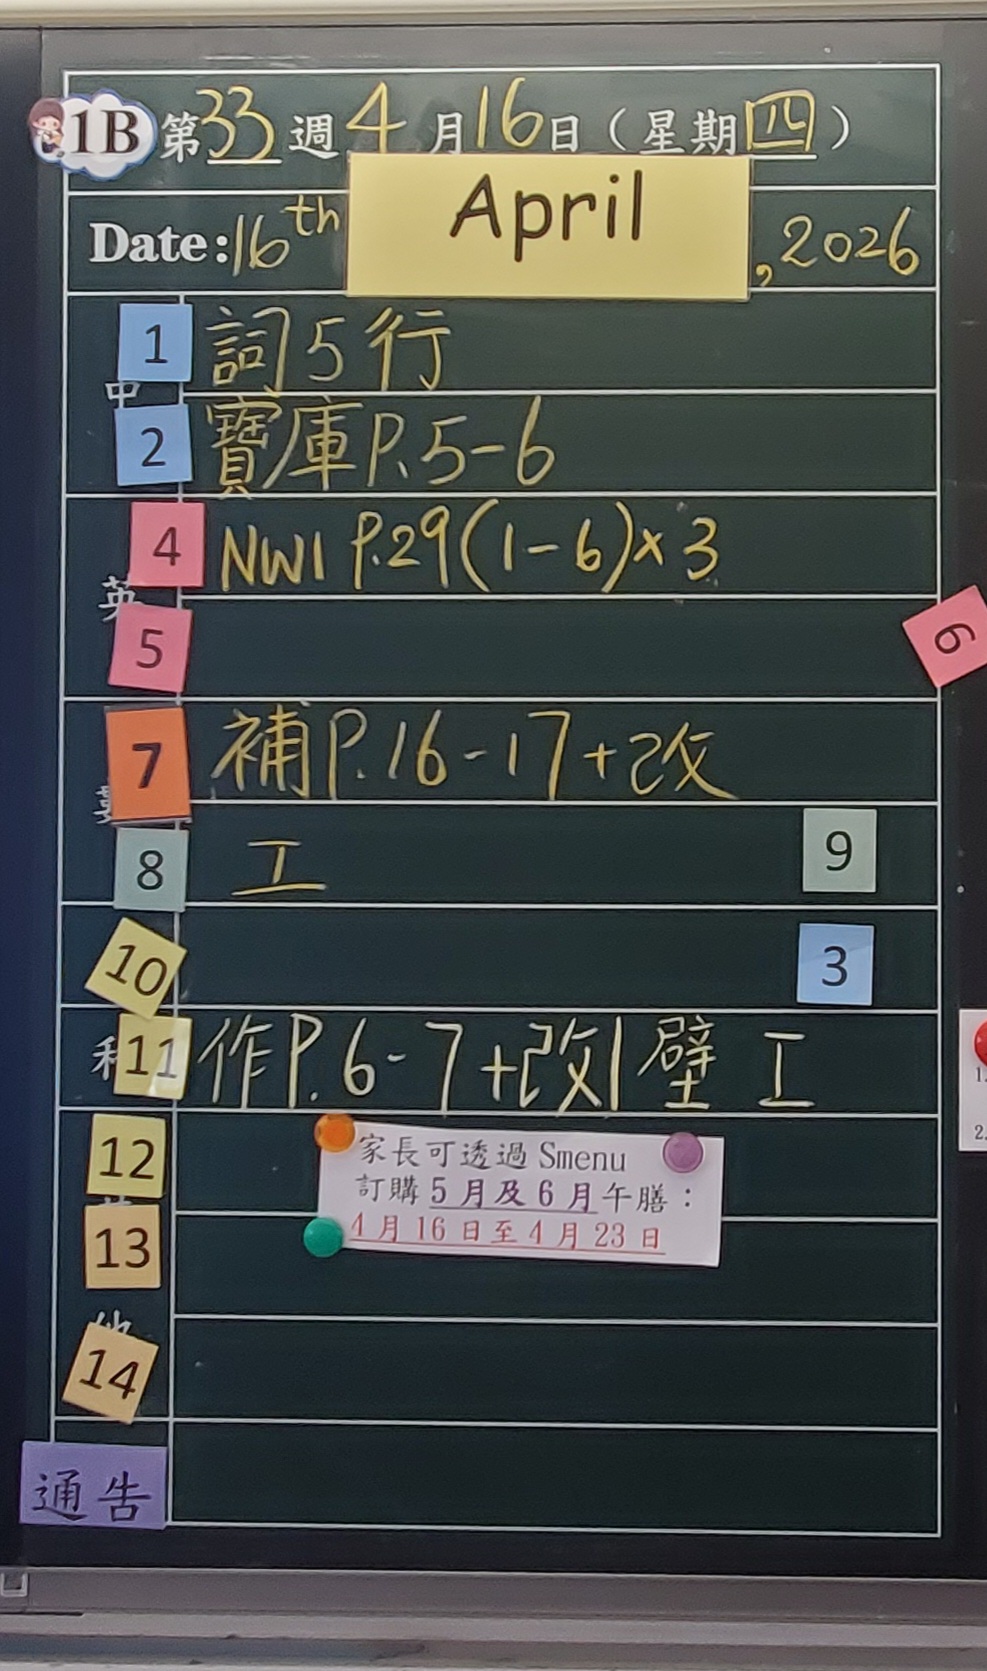 1B 第33週4月16日（星期四）
Date: 16th April, 2026
中
1 詞5行
2 寶庫P.5-6
英
4 NW1 P.29(1-6)×3
5
6
7 補P.16-17+改
8 工 9
10 3
11 作P.6-7+改|壁 工
12
家長可透過 Smenu
訂購 5 月及 6 月午膳：
4 月 16 日至 4 月 23 日
13
14
通告
1.
2.